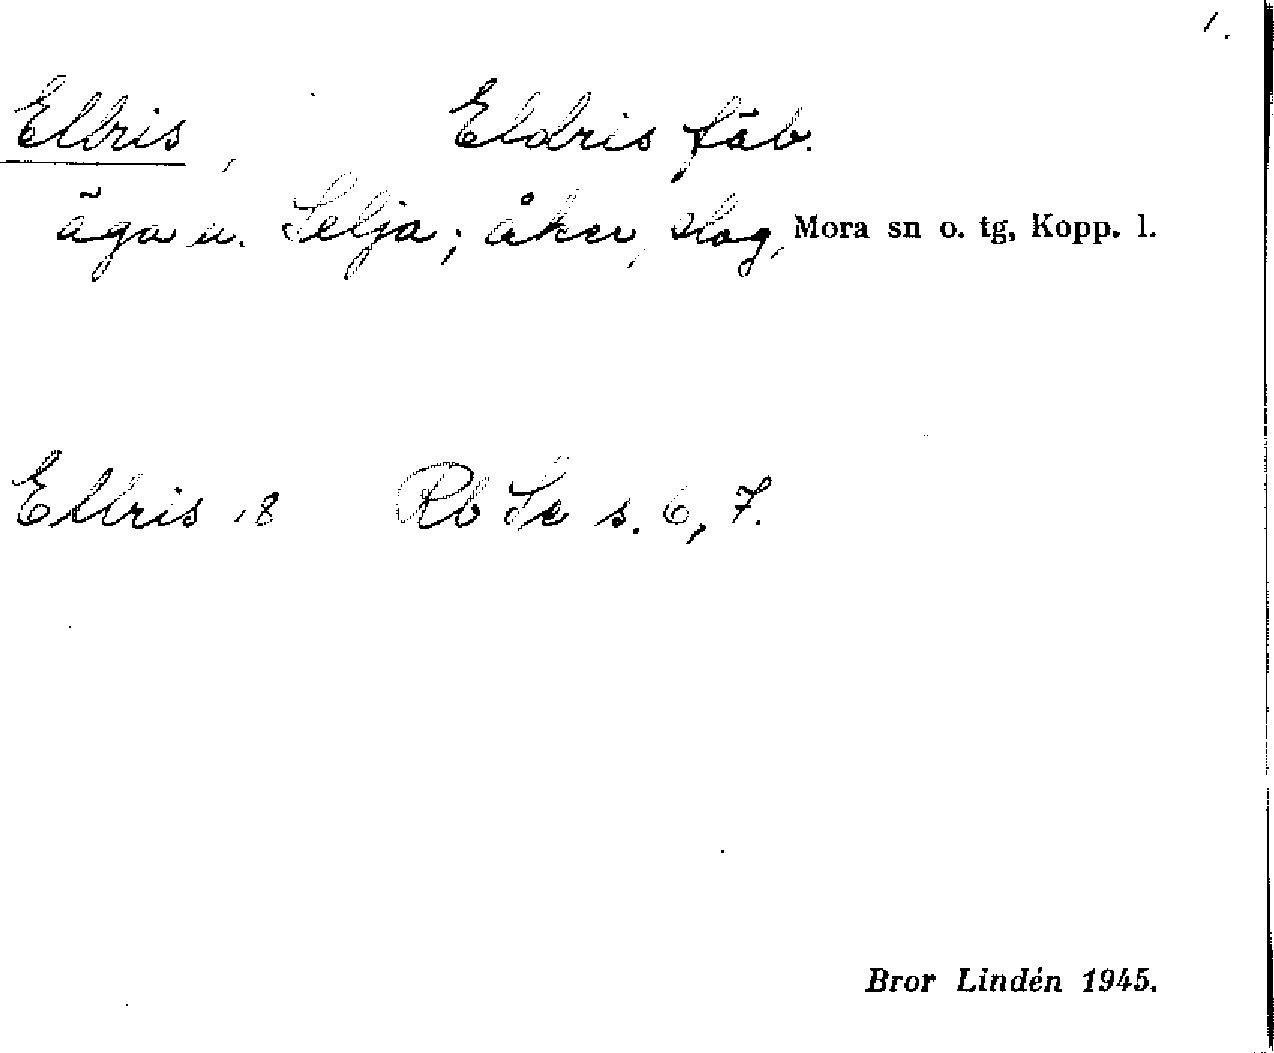 1.
Ellris, Eldris fäb.
äga u. Selja; åker, slog, Mora sn o. tg, Kopp. l.
Ellris 18 Rb Se s. 6, 7.
Bror Lindén 1945.